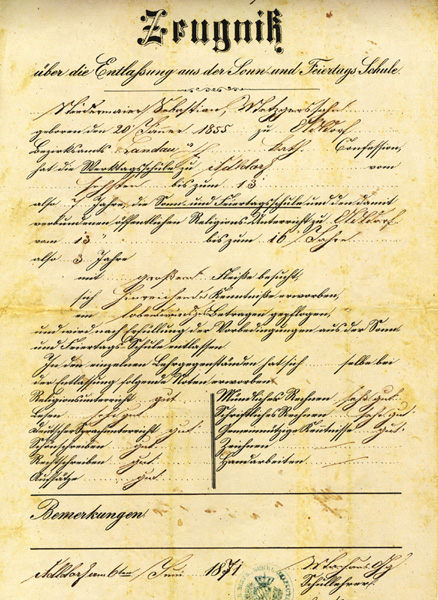 Zeugniß
über die Entlaßung aus der Sonn und Feiertags Schule.
Niedermaier Sebastian, Metzgerssohn
geboren am 20 Jäner 1855 zu Adldorf
Bezirksamts Landau a/I kath. Confession,
hat die Werktagsschule zu Adldorf vom
sechsten bis zum 13
also 7 Jahre, die Sonn- und Feiertagsschule und den damit
verbundenen öffentlichen Religions Unterricht zu Adldorf
vom 13 bis zum 16 Jahre
also 3 Jahre
mit großem Fleiße besucht,
sich hinreichende Kenntniße erworben,
ein lobenswürdiges Betragen gepflogen,
und wird nach Erfüllung der Vorbedingungen aus der Sonn
und Feiertags Schule entlassen.
In den einzelnen Lehrgegenständen hat sich selbe bei
der Entlaßung folgende Noten erworben
Religionsunterricht gut
Lesen sehr gut
Deutscher Sprachunterricht gut
Schönschreiben gut
Rechtschreiben gut
Aufsätze gut
Mündliches Rechnen sehr gut
Schriftliches Rechnen sehr gut
Gemeinnützige Kentniße gut
Zeichnen
Handarbeiten
Bemerkungen
Adldorf am 6ten Juni 1871
Schullehrer